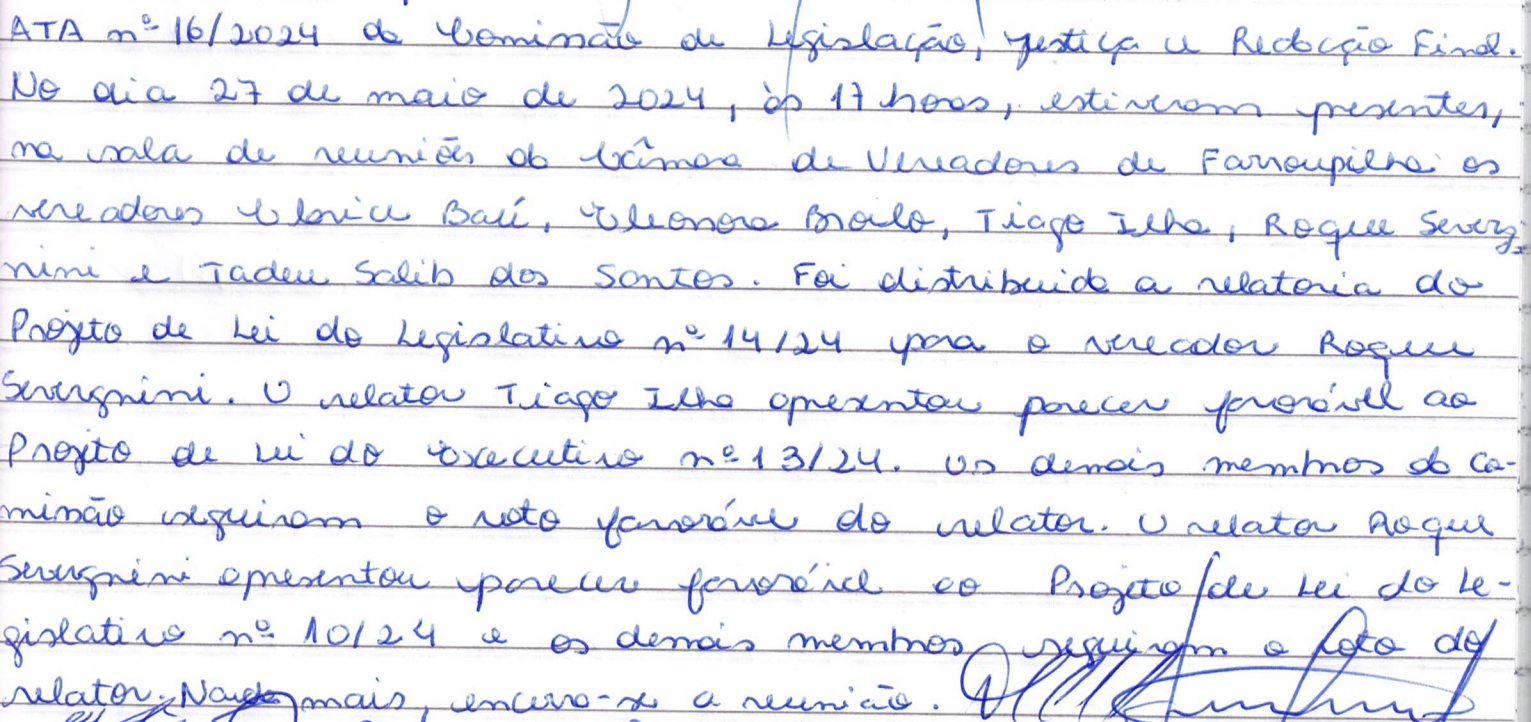 ATA nº 16/2024 da Comissão de Legislação, Justiça e Redação Final.
No dia 27 de maio de 2024, às 17 horas, estiveram presentes,
na sala de reuniões da Câmara de Vereadores de Farroupilha os
vereadores Clarice Baú, Eleonora Broilo, Tiago Ilha, Roque Severg-
nini e Tadeu Salib dos Santos. Foi distribuida a relatoria do
Projeto de Lei do Legislativo nº 14/24 para o vereador Roque
Severgnini. O relator Tiago Ilha apresentou parecer favorável ao
Projeto de Lei do Executivo nº 13/24. Os demais membros da Co-
missão seguiram o voto favorável do relator. O relator Roque
Severgnini apresentou parecer favorável ao Projeto de Lei do Le-
gislativo nº 10/24 e os demais membros seguiram o voto do
relator. Nada mais, encerro-se a reunião.